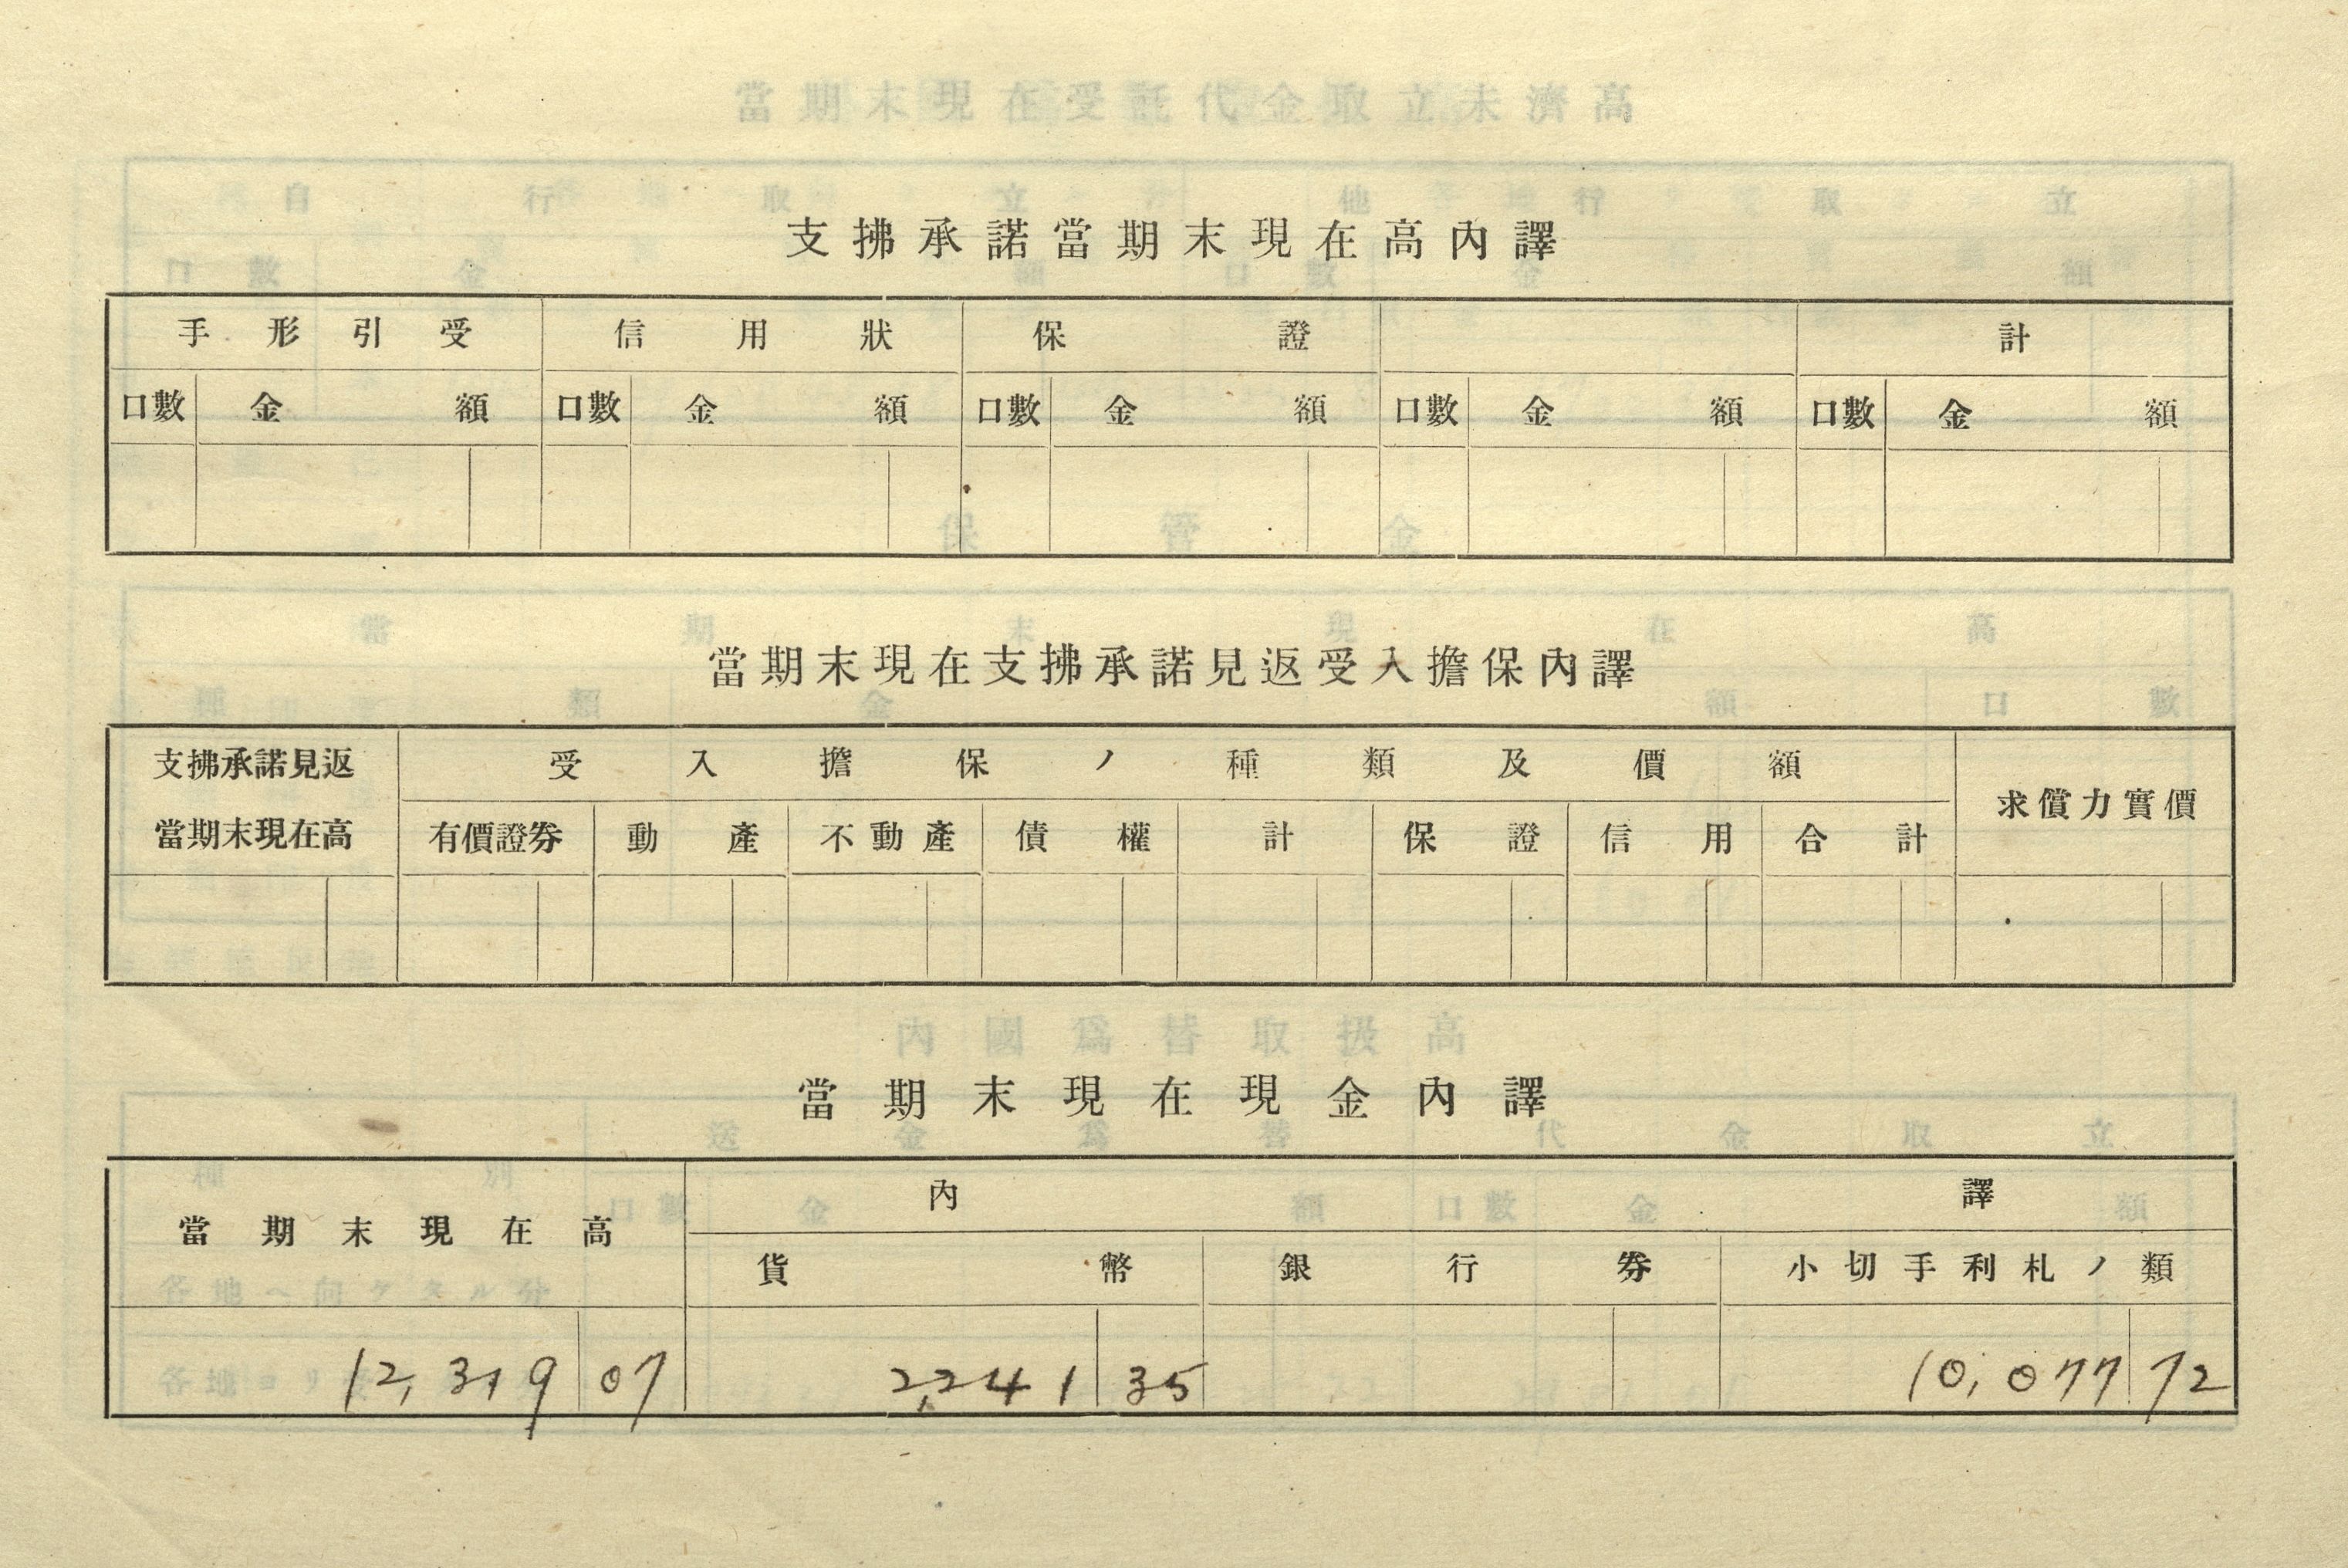 支拂承諾當期末現在高內譯
手形引受 信用狀 保證 計
口數 金額 口數 金額 口數 金額 口數 金額 口數 金額
當期末現在支拂承諾見返受入擔保內譯
支拂承諾見返當期末現在高 受入擔保ノ種類及價額 求償力實價
有價證券 動產 不動產 債權 計 保證 信用 合計
當期末現在現金內譯
當期末現在高 內譯
貨幣 銀行券 小切手利札ノ類
12,319 07 2,241 35 10,077 72